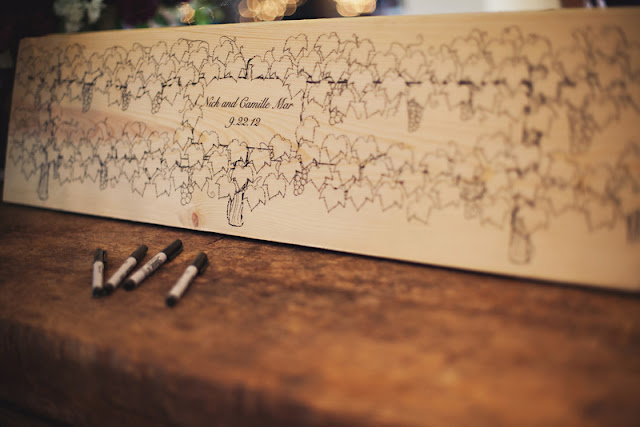 Nick and Camille Mar
9.22.12